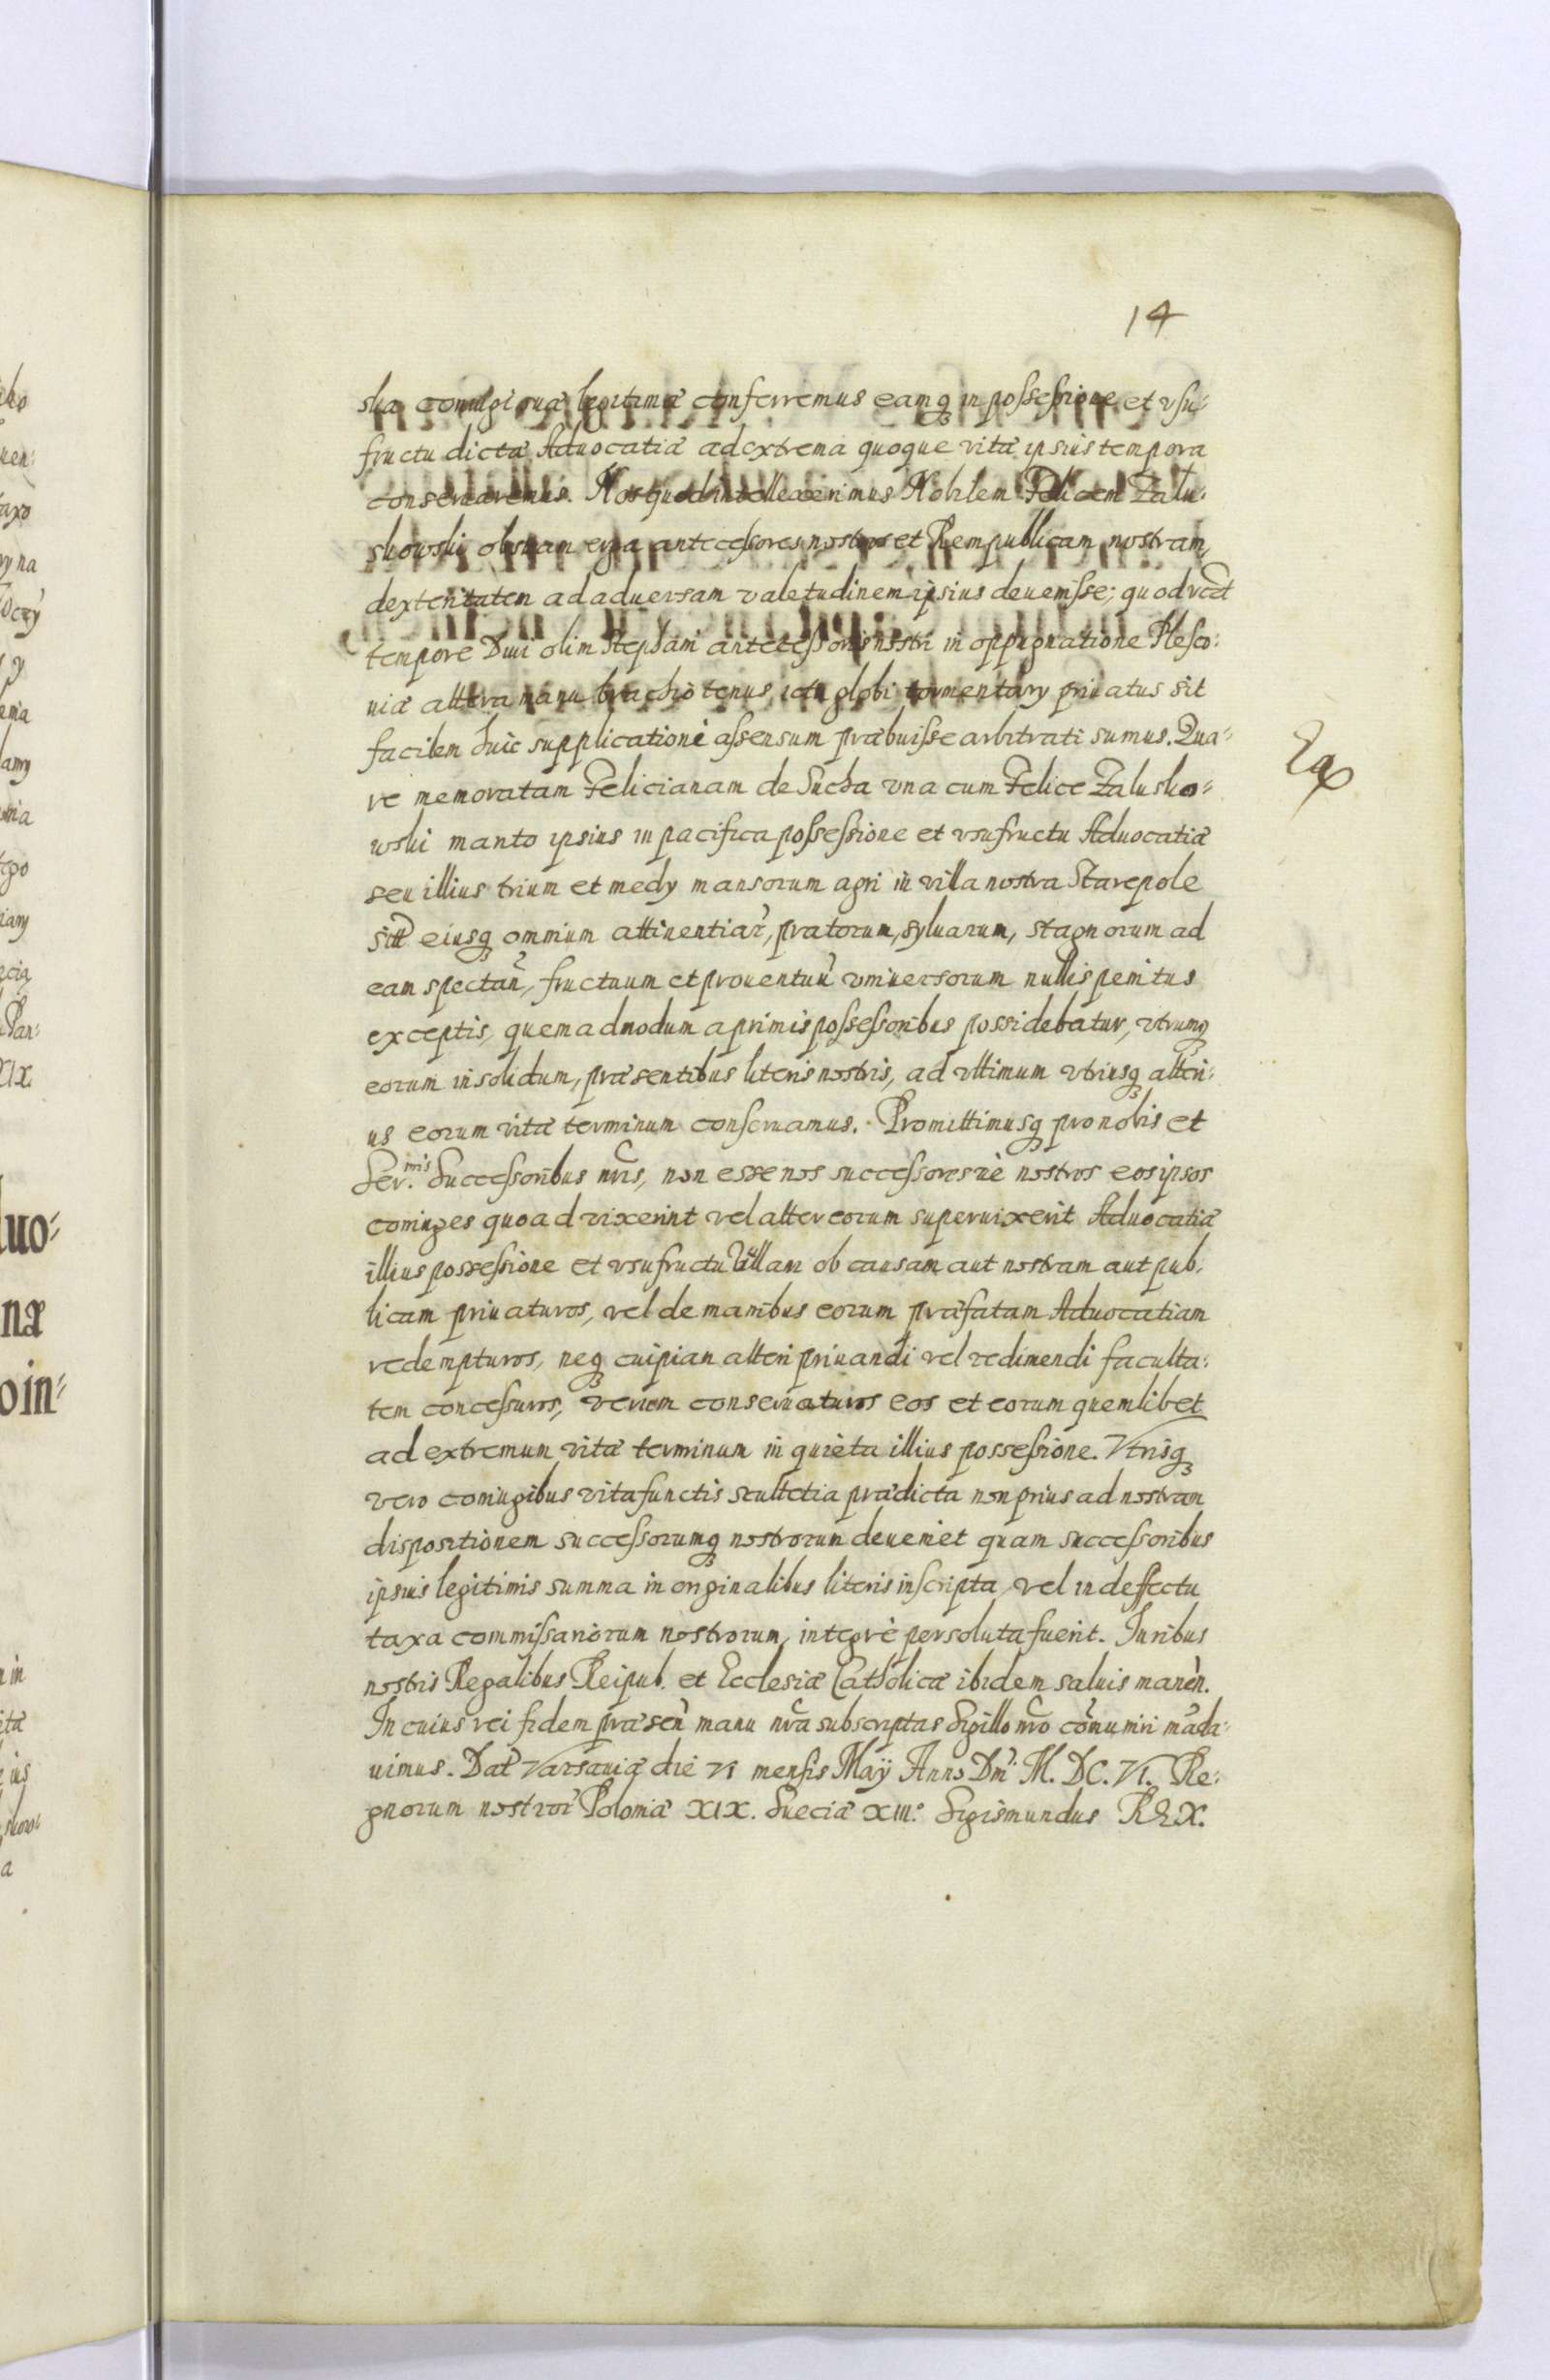 14
ska coniugi suæ legitimæ conferremus eamq in possessione et vsu-
fructu dictæ Aduocatiæ ad extrema quoque vitæ ipsius tempora
conseruaremus. Nos quod intellexerimus Nobilem Felicem Zalu-
skowski obsitam erga antecessores nostros et Rempublicam nostram,
dexteritatem ad aduersam valetudinem ipsius deuenisse; quod
tempore Diui olim Stephani antecessoris nostri in oppugnatione Plesco-
uiæ altera manu brachio tenus, ictu globi tormentary priuatus sit
facilem huic supplicationi assensum præbuisse arbitrati sumus. Qua-
re memoratam Felicianam de Sucha vna cum Felice Zalusko-
wski marito ipsius in pacifica possessione et vsufructu Aduocatiæ
seu illius trium et medy mansorum agri in villa nostra Starepole
sitæ eiusq omnium attinentiar̃, pratorum, syluarum, stagnorum ad
eam spectañ, fructuum et prouentuũ vniuersorum nullis penitus
exceptis, quemadmodum a primis possessoribus possidebatur, vtrumq
eorum in solidum, præsentibus literis nostris, ad vltimum vtriusq alteri-
us eorum vitæ terminum conseruamus. Promittimusq pro nobis et
Ser.mis Successoribus nr̃is, non esse nos successoresuè nostros eos ipsos
coniuges quoad vixerint vel alter eorum superuixerit Aduocatiæ
illius possessione et vsufructu vllam ob causam aut nostram aut pub-
licam priuaturos, vel de manibus eorum præfatam Aduocatiam
redempturos, neq cuipiam alteri priuandi vel redimendi faculta-
tem concessuros, verum conseruaturos eos et eorum quemlibet
ad extremum vitæ terminum in quieta illius possessione. Vtrisq
vero coniugibus vita functis scultetia prædicta non prius ad nostram
dispositionem successorumq nostrorum deueniet quam successoribus
ipsius legitimis summa in originalibus literis inscripta, vel in deffectu
taxa commissariorum nostrorum, integrè persoluta fuerit. Iuribus
nostris Regalibus Reipub. et Ecclesiæ Catholicæ ibidem saluis maneñ.
In cuius rei fidem præseñ manu nr̃a subscriptas Sigillo nr̃o cõmuniri mãda-
uimus. Dat̃ Varsauiæ die VI mensis Maÿ Anno Dñi M. DC. VI. Re-
gnorum nostror̃ Poloniæ XIX. Sueciæ XIII.º Sigismundus REX.